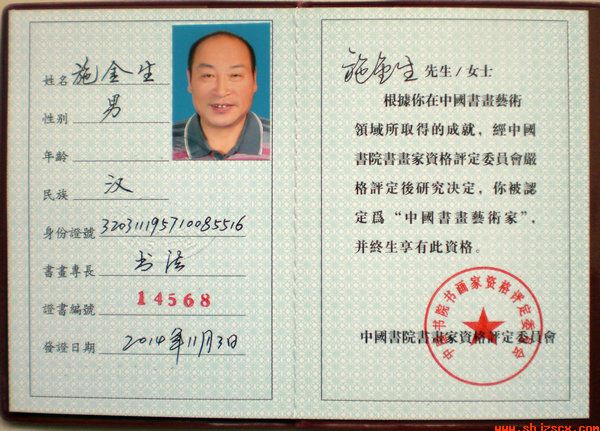 姓名 施金生
性别 男
年龄
民族 汉
身份證號 320311195710085516
書畫專長 书法
證書編號 14568
發證日期 2014年11月3日
施金生 先生/女士
根據你在中國書畫藝術
領域所取得的成就，經中國
書院書畫家資格評定委員會嚴
格評定後研究決定，你被認
定爲“中國書畫藝術家”，
并終生享有此資格。
中國書院書畫家資格評定委員會
中国书院书画家资格评定委员会
www.shjzscx.com